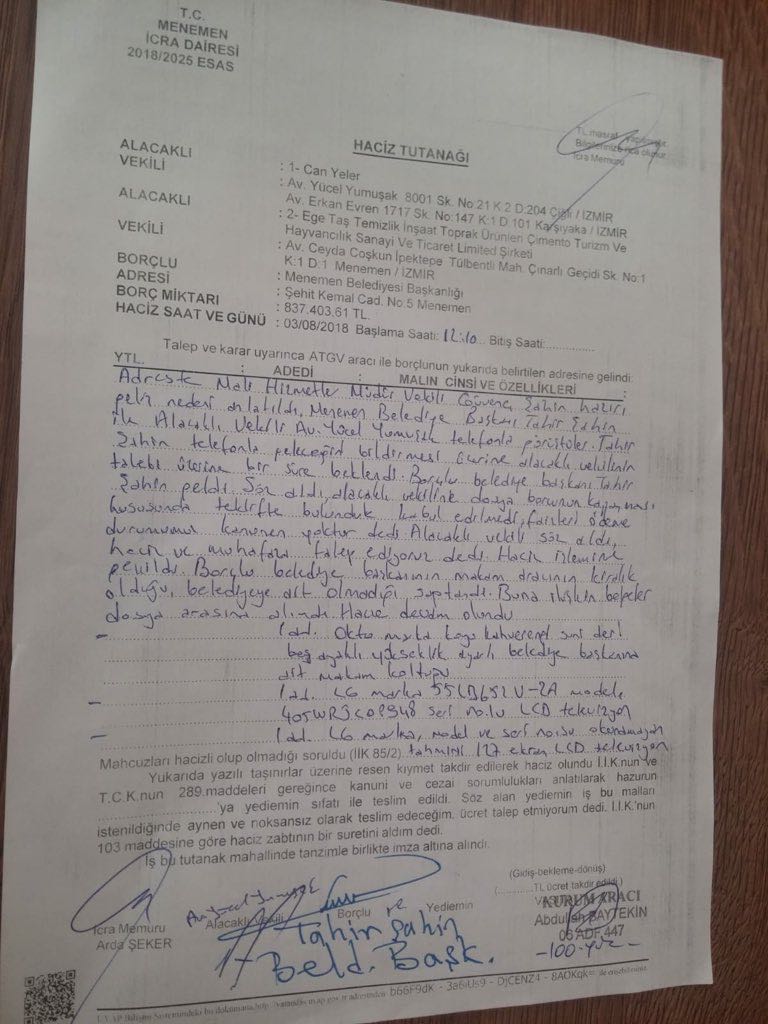 T.C.
MENEMEN
İCRA DAİRESİ
2018/2025 ESAS
TL.masraf yapılmıştır.
Bilgilerinize rica olunur.
İcra Memuru
HACİZ TUTANAĞI
ALACAKLI : 1- Can Yeler
VEKİLİ : Av. Yücel Yumuşak 8001 Sk. No:21 K:2 D:204 Çiğli / İZMİR
Av. Erkan Evren 1717 Sk. No:147 K:1 D.101 Karşıyaka / İZMİR
ALACAKLI : 2- Ege Taş Temizlik İnşaat Toprak Ürünleri Çimento Turizm Ve
Hayvancılık Sanayi Ve Ticaret Limited Şirketi
VEKİLİ : Av. Ceyda Coşkun İpektepe Tülbentli Mah. Çınarlı Geçidi Sk. No:1
K:1 D:1 Menemen / İZMİR
BORÇLU : Menemen Belediyesi Başkanlığı
ADRESİ : Şehit Kemal Cad. No:5 Menemen
BORÇ MİKTARI : 837.403.61 TL.
HACİZ SAAT VE GÜNÜ : 03/08/2018 Başlama Saati: 12:10 Bitiş Saati:..............
Talep ve karar uyarınca ATGV aracı ile borçlunun yukarıda belirtilen adresine gelindi:
YTL. : ADEDİ : MALIN CİNSİ VE ÖZELLİKLERİ :
Adreste Mali Hizmetler Müdür Vekili Şahin hazır
geliş nedeni anlatıldı. Menemen Belediye Başkanı Tahir Şahin
ile Alacaklı Vekili Av. Yücel Yumuşak telefonla görüştüler. Tahir
Şahin telefonla geleceğini bildirmesi üzerine alacaklı vekilinin
talebi üzerine bir süre beklendi. Borçlu belediye başkanı Tahir
Şahin geldi. Söz aldı, alacaklı vekiline dosya borcunun
hususunda teklifte bulunduk kabul edilmedi, faizleri ödeme
durumumuz kanunen yoktur dedi. Alacaklı vekili söz aldı,
haciz ve muhafaza talep ediyoruz dedi. Haciz işlemine
geçildi. Borçlu belediye başkanının makam aracının kiralık
olduğu, belediyeye ait olmadığı saptandı. Buna ilişkin belgeler
dosya arasına alındı. Hacze devam olundu
- 1 ad. marka koyu kahverengi suni deri
beş ayaklı yükseklik ayarlı belediye başkanına
ait makam koltuğu
- 1 ad. LG marka 55LB652V-ZA model
seri no.lu LCD televizyon
- 1 ad. LG marka, model ve seri no.su okunamayan
tahmini 127 ekran LCD televizyon
Mahcuzları hacizli olup olmadığı soruldu (İİK 85/2)
Yukarıda yazılı taşınırlar üzerine resen kıymet takdir edilerek haciz olundu İ.İ.K.nun ve
T.C.K.nun 289.maddeleri gereğince kanuni ve cezai sorumlulukları anlatılarak hazurun
..............................'ya yediemin sıfatı ile teslim edildi. Söz alan yediemin iş bu malları
istenildiğinde aynen ve noksansız olarak teslim edeceğim. ücret talep etmiyorum dedi. İ.İ.K.'nun
103 maddesine göre haciz zabtının bir suretini aldım dedi.
İş bu tutanak mahallinde tanzimle birlikte imza altına alındı.
(Gidiş-bekleme-dönüş)
(............TL ücret takdir edildi.)
Av. Yücel Yumuşak
İcra Memuru
Arda ŞEKER
Alacaklı Vekili
Borçlu ve Yediemin
Tahir Şahin
Beld. Başk.
KURUM ARACI
Abdullah BAYTEKİN
06 ADF 447
-100-yüz-
UYAP Bilişim Sistemindeki bu dokümana http://vatandas.uyap.gov.tr adresinden b66F9dK - 3a6iUs9 - DjCENZ4 - 8AOKqk= ile erişebilirsiniz.